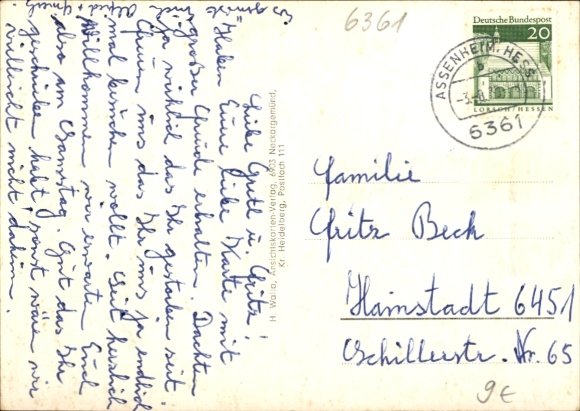 6361
Deutsche Bundespost
20
LORSCH/HESSEN
ASSENHEIM, HESS
b
6361
Familie
Fritz Beck
Hainstadt 6451
Schillerstr. Nr. 65
9€
H. Walla, Ansichtskarten-Verlag, 6903 Neckargemünd,
Kr. Heidelberg, Postfach 111
Liebe Gretl u. Fritz!
"Haben Eure liebe Karte mit
großer Freude erhalten. Dachten
ja wirklich das Ihr gestorben seit.
Freuen uns das Ihr uns ja endlich
mal besuchen wollt. Seit herzlich
Willkommen wir erwarten Euch
also am Samstag. Gut das Ihr
geschrieben habt, sonst wären wir
vielleicht nicht daheim.
Es grüßt Euch
Alfred +